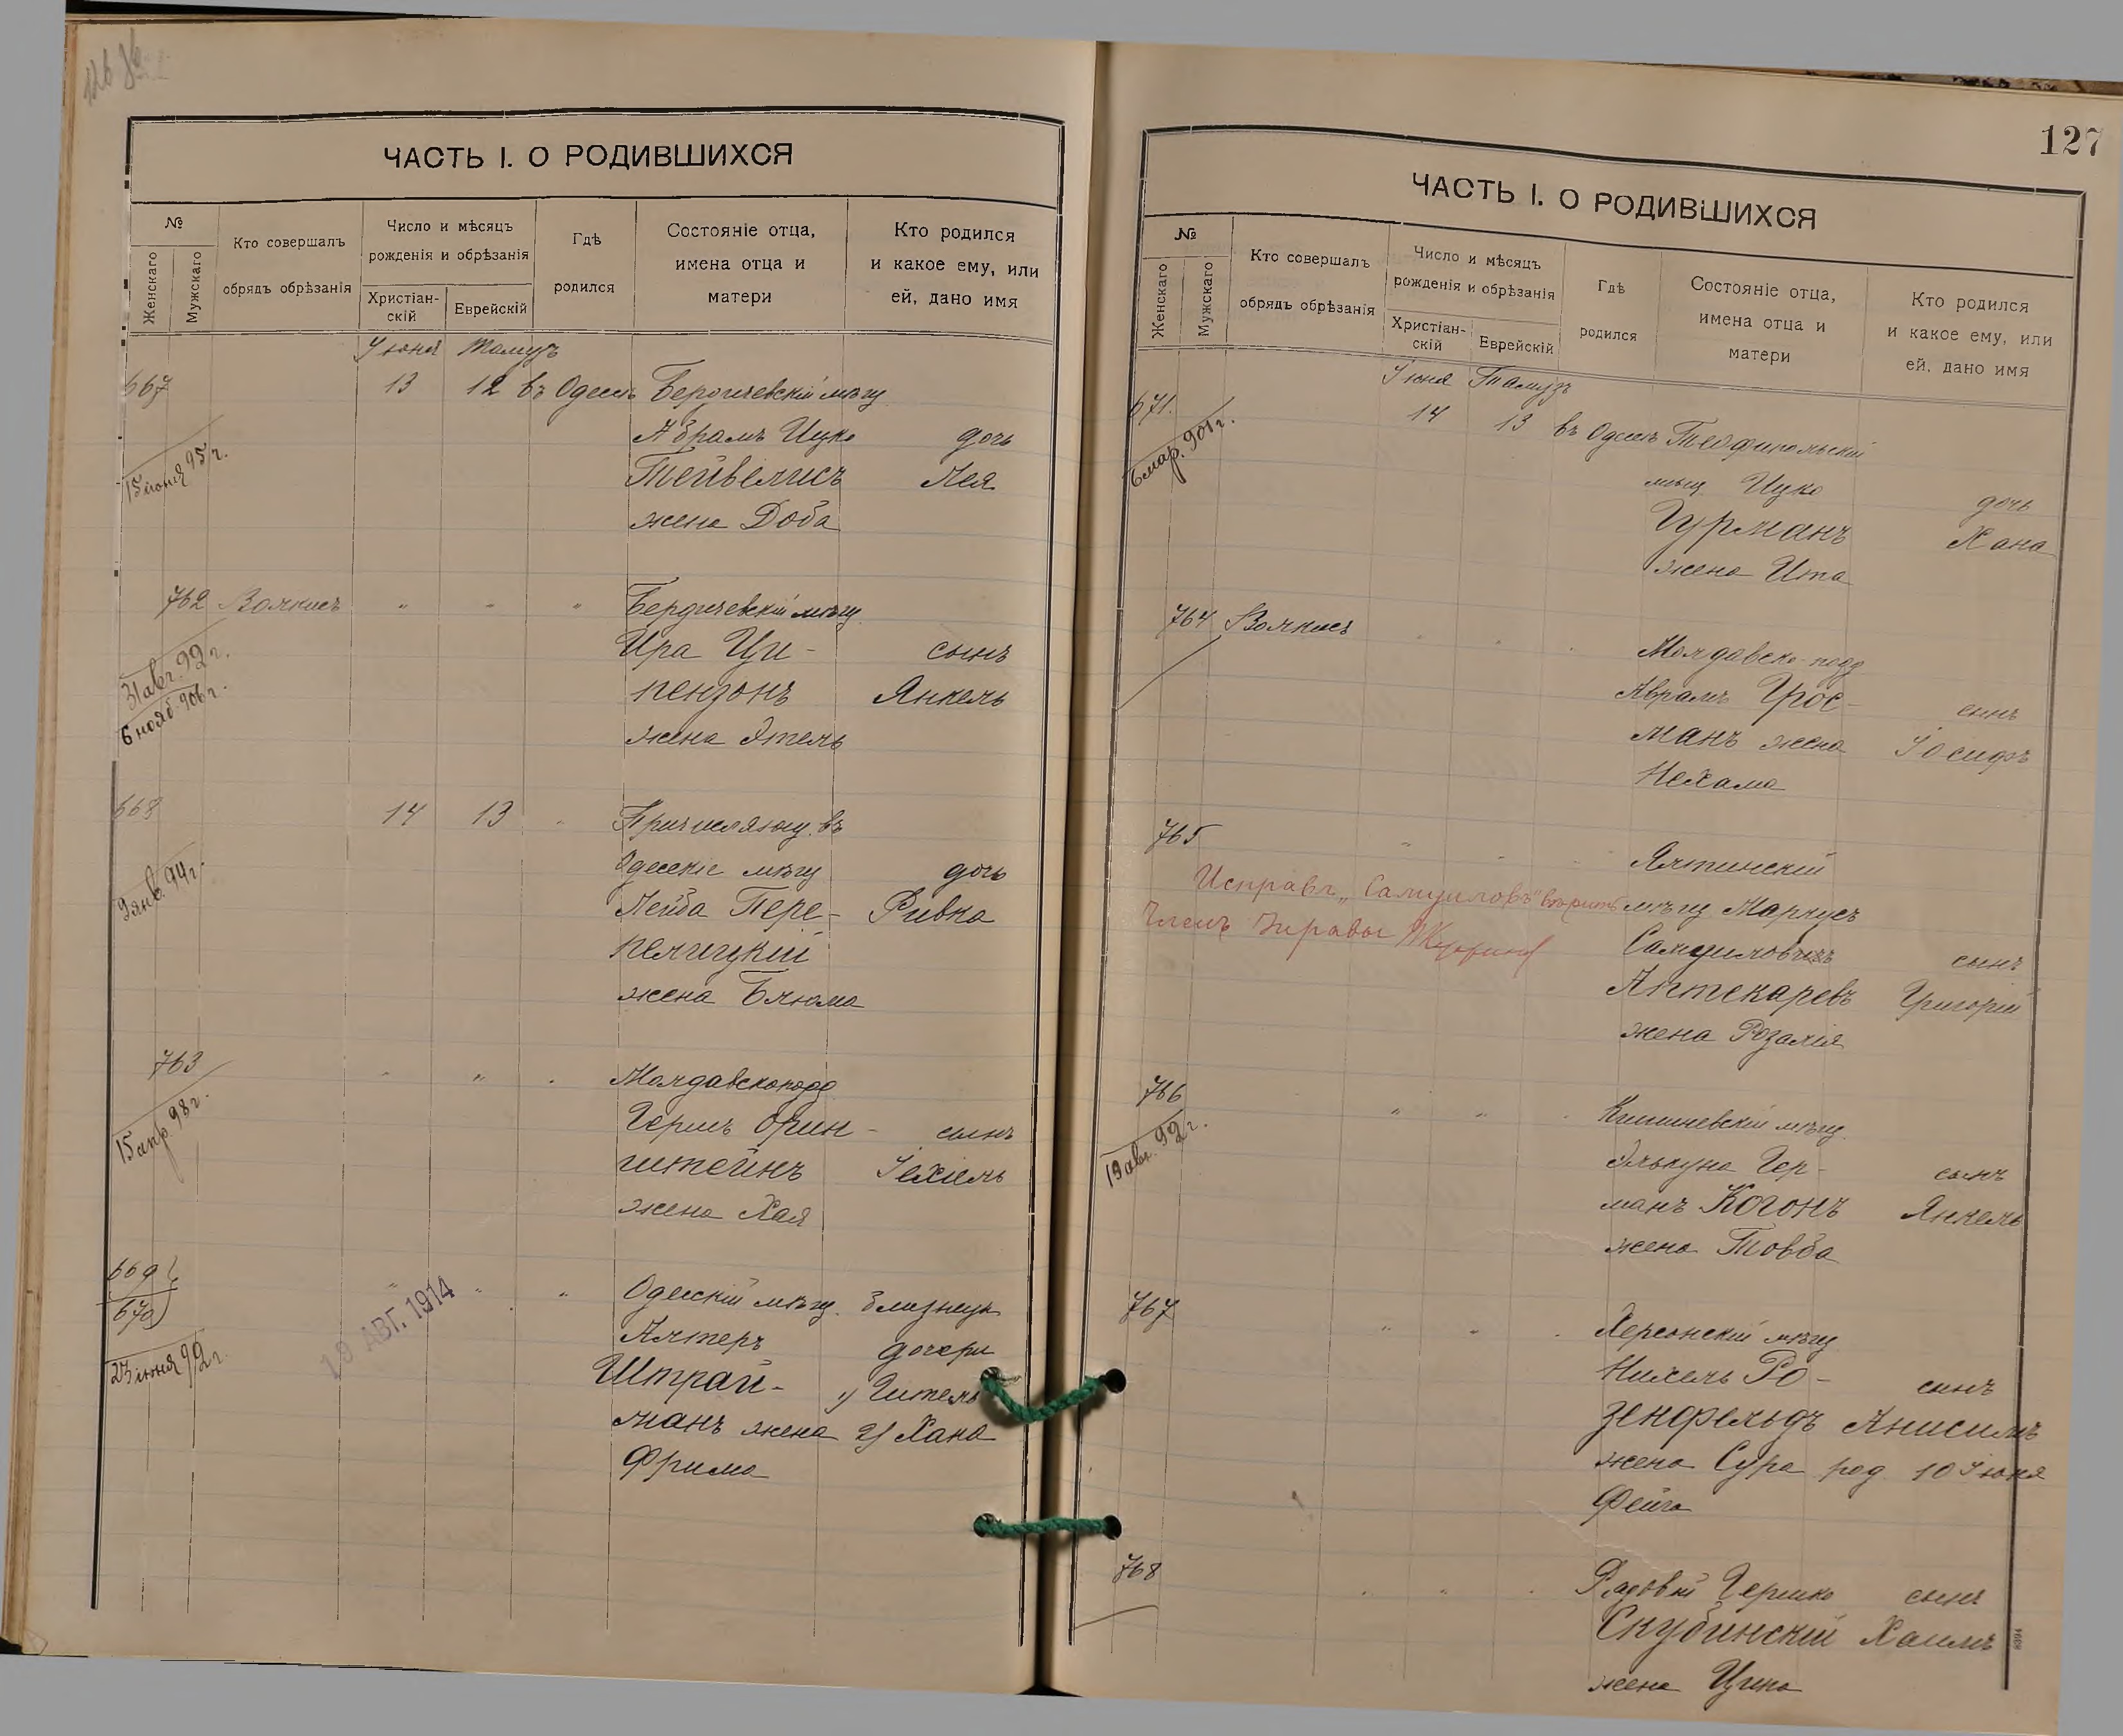 ЧАСТЬ I. О РОДИВШИХСЯ
№
Женскаго
Мужскаго
Кто совершалъ
обрядъ обрѣзанія
Число и мѣсяцъ
рожденія и обрѣзанія
Христіан-
скій
Еврейскій
Гдѣ
родился
Состояніе отца,
имена отца и
матери
Кто родился
и какое ему, или
ей, дано имя
Іюня Тамузъ
667 13 12 въ Одессѣ Бердичевскій мѣщ
Абрамъ Ицко дочь
15 іюня 95 г.
Тейвелисъ Лея
жена Доба
762 " " " Бердичевскій мѣщ.
Ици- сынъ
31 авг. 99 г.
6 нояб. 906 г.
пензонъ Янкель
жена Этель
668 14 13 " Причисляющ. въ
Одесскіе мѣщ дочь
9 янв. 94 г.
Лейба Пере- Ривка
пелицкій
жена Блюма
763 " " " Молдавскоподд
Гершъ Орен- сынъ
15 апр. 98 г.
штейнъ Іехіель
жена Хая
669
670
" " " Одесскій мѣщ. близнецы
Алтеръ дочери
23 іюня 92 г.
19 АВГ. 1914
Штрай- 1) Гитель
манъ жена 2) Хана
Фрима
127
ЧАСТЬ I. О РОДИВШИХСЯ
№
Женскаго
Мужскаго
Кто совершалъ
обрядъ обрѣзанія
Число и мѣсяцъ
рожденія и обрѣзанія
Христіан-
скій
Еврейскій
Гдѣ
родился
Состояніе отца,
имена отца и
матери
Кто родился
и какое ему, или
ей, дано имя
Іюня Тамузъ
671. 14 13 въ Одессѣ Теофипольскій
6 мар. 901 г.
мѣщ Ицко дочь
Гурманъ Хана
жена Ита
764 " " " Молдавско-подд
Абрамъ Грос- сынъ
манъ жена Іосифъ
Нехама
765 " " " Ялтинскій
Исправл. „Самуиловъ" вѣрить мѣщ. Маркусъ
Членъ Управы
Самуиловъ сынъ
Аптекаревъ Григорій
жена Розалія
766 " " " Кишиневскій мѣщ.
19 авг. 92 г.
Элькуна Гер- сынъ
манъ Когонъ Янкель
жена Товба
767 " " " Херсонскій мѣщ
Ро- сынъ
зенфельдъ Анисимъ
жена Сура род. 10 Іюня
Фейга
768 " " " Рядовой Гершко сынъ
Скубинскій Хаимъ
жена Ципа
8394